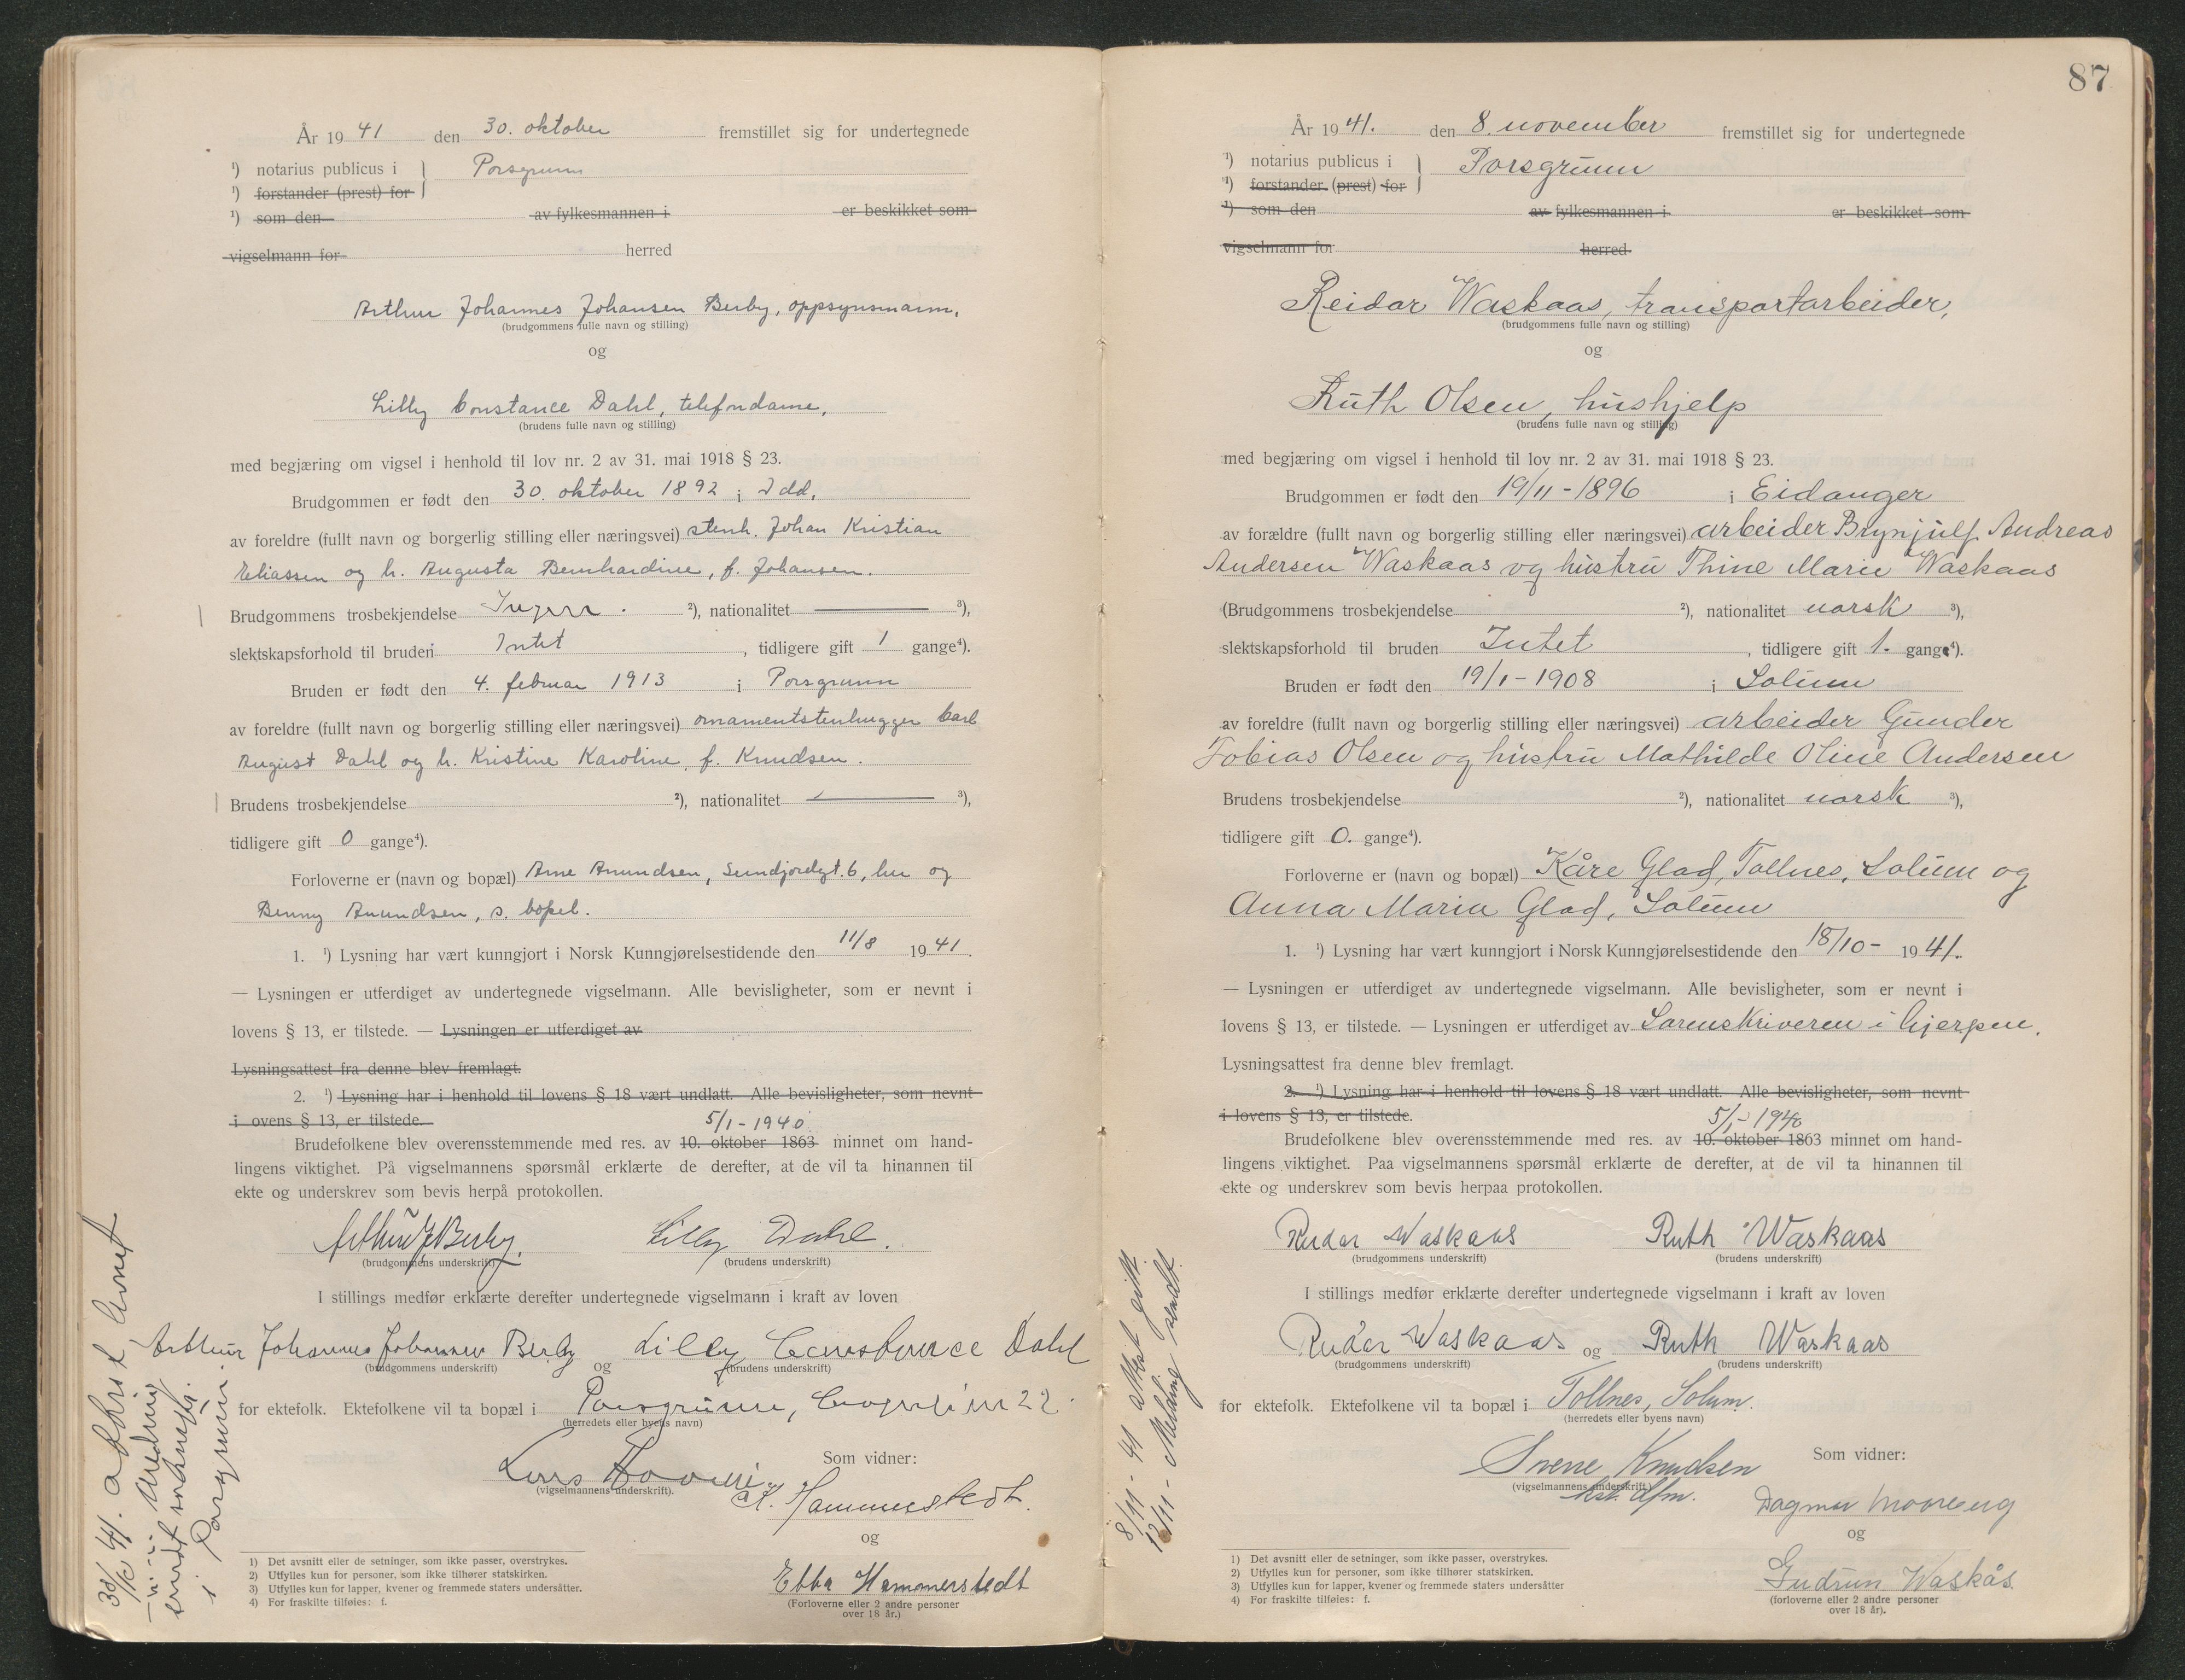 År 19 41 den 30. oktober fremstillet sig for undertegnede
¹) notarius publicus i Porsgrunn
¹) forstander (prest) for
¹) som den av fylkesmannen i er beskikket som
vigselmann for herred
Arthur Johannes Johansen Berby, oppsynsmann,
(brudgommens fulle navn og stilling)
og
Lilly Constance Dahl, telefondame,
(brudens fulle navn og stilling)
med begjæring om vigsel i henhold til lov nr. 2 av 31. mai 1918 § 23.
Brudgommen er født den 30. oktober 1892 i Idd,
av foreldre (fullt navn og borgerlig stilling eller næringsvei) stenh. Johan Kristian
Eliassen og h. Augusta Bernhardine, f. Johansen.
Brudgommens trosbekjendelse ²), nationalitet ³),
slektskapsforhold til bruden Intet, tidligere gift 1 gange⁴).
Bruden er født den 4. februar 1913 i Porsgrunn
av foreldre (fullt navn og borgerlig stilling eller næringsvei) ornamentstenhugger Carl
August Dahl og h. Kristine Karoline, f. Knudsen.
Brudens trosbekjendelse ²), nationalitet ³),
tidligere gift 0 gange⁴).
Forloverne er (navn og bopæl) Arne Amundsen, Sundjordgt. 6, her og
Benny Amundsen, s. bopel.
1. ¹) Lysning har vært kunngjort i Norsk Kunngjørelsestidende den 11/8 19 41.
— Lysningen er utferdiget av undertegnede vigselmann. Alle bevisligheter, som er nevnt i
lovens § 13, er tilstede. — Lysningen er utferdiget av
Lysningsattest fra denne blev fremlagt.
2. ¹) Lysning har i henhold til lovens § 18 vært undlatt. Alle bevisligheter, som nevnt
i ovens § 13, er tilstede. 5/1-1940
Brudefolkene blev overensstemmende med res. av 10. oktober 1863 minnet om hand-
lingens viktighet. På vigselmannens spørsmål erklærte de derefter, at de vil ta hinannen til
ekte og underskrev som bevis herpå protokollen.
Arthur J Berby. Lilly Dahl.
(brudgommens underskrift) (brudens underskrift)
I stillings medfør erklærte derefter undertegnede vigselmann i kraft av loven
Arthur Johannes Johannsen Berby og Lilly Constance Dahl
(brudgommens underskrift) (brudens underskrift)
for ektefolk. Ektefolkene vil ta bopæl i Porsgrunn,
(herredets eller byens navn)
Som vidner:
(vigselmannens underskrift).
K. Hammerstedt.
og
Ebba Hammerstedt
(Forloverne eller 2 andre personer
over 18 år.)
1) Det avsnitt eller de setninger, som ikke passer, overstrykes.
2) Utfylles kun for personer, som ikke tilhører statskirken.
3) Utfylles kun for lapper, kvener og fremmede staters undersåtter.
4) For fraskilte tilføies: f.
30/10 41. attest levnet
i Porsgrunn
87
År 19 41. den 8. november fremstillet sig for undertegnede
¹) notarius publicus i Porsgrunn
¹) forstander (prest) for
¹) som den av fylkesmannen i er beskikket som
vigselmann for herred
Reidar Waskaas, transportarbeider,
(brudgommens fulle navn og stilling)
og
Ruth Olsen, hushjelp
(brudens fulle navn og stilling)
med begjæring om vigsel i henhold til lov nr. 2 av 31. mai 1918 § 23.
Brudgommen er født den 19/11-1896 i Eidanger
av forældre (fullt navn og borgerlig stilling eller næringsvei) arbeider Brynjulf Andreas
Andersen Waskaas og hustru Thine Marie Waskaas
(Brudgommens trosbekjendelse ²), nationalitet norsk ³),
slektskapsforhold til bruden Intet, tidligere gift 1. gange⁴).
Bruden er født den 19/1-1908 i Solum
av foreldre (fullt navn og borgerlig stilling eller næringsvei) arbeider Gunder
Tobias Olsen og hustru Mathilde Oline Andersen
Brudens trosbekjendelse ²), nationalitet norsk ³),
tidligere gift 0. gange⁴).
Forloverne er (navn og bopæl) Kåre Glad, Tollnes, Solum og
Anna Maria Glad, Solum
1. ¹) Lysning har vært kunngjort i Norsk Kunngjørelsestidende den 18/10- 19 41.
— Lysningen er utferdiget av undertegnede vigselmann. Alle bevisligheter, som er nevnt i
lovens § 13, er tilstede. — Lysningen er utferdiget av Sorenskriveren i Gjerpen.
Lysningsattest fra denne blev fremlagt.
2. ¹) Lysning har i henhold til lovens § 18 vært undlatt. Alle bevisligheter, som nevnt
i lovens § 13, er tilstede. 5/1-1940
Brudefolkene blev overensstemmende med res. av 10. oktober 1863 minnet om hand-
lingens viktighet. Paa vigselmannens spørsmål erklærte de derefter, at de vil ta hinannen til
ekte og underskrev som bevis herpaa protokollen.
Reidar Waskaas Ruth Waskaas
(brudgommens underskrift) (brudens underskrift)
I stillings medfør erklærte derefter undertegnede vigselmann i kraft av loven
Reidar Waskaas og Ruth Waskaas
(brudgommens underskrift) (brudens underskrift)
for ektefolk. Ektefolkene vil ta bopæl i Tollnes, Solum.
(herredets eller byens navn)
Sverre Knudsen Som vidner:
(vigselmannens underskrift.)
kst. dfm.
Dagmar
og
Gudrun Waskås.
(forloverne eller 2 andre personer
over 18 år).
1) Det avsnitt eller de setninger, som ikke passer, overstrykes.
2) Utfylles kun for personer, som ikke tilhører statskirken.
3) Utfylles kun for lapper, kvener og fremmede staters undersåtter
4) For fraskilte tilføies: f.
8/11-41 attest gitt.
13/11- Melding sendt.